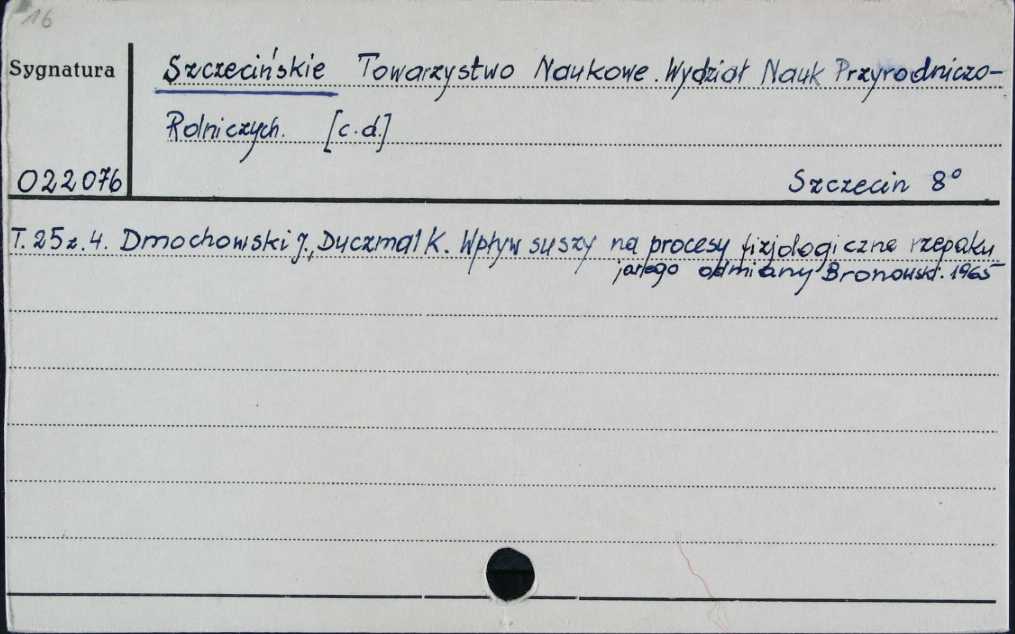 16
Sygnatura
Szczecińskie Towarzystwo Naukowe. Wydział Nauk Przyrodniczo-
Rolniczych. [c.d.]
022076
Szczecin 8°
T. 25 z. 4. Dmochowski J., Duczmal K. Wpływ suszy na procesy fizjologiczne rzepaku
jarego odmiany Bronowski. 1965